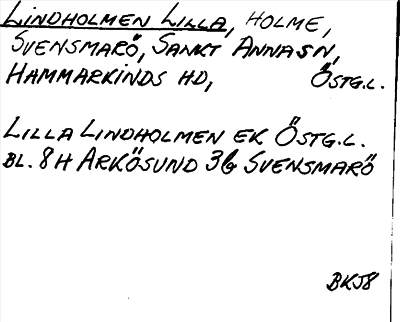 LINDHOLMEN LILLA, HOLME,
SVENSMARÖ, SANKT ANNA SN,
HAMMARKINDS HD, ÖSTG.L.
LILLA LINDHOLMEN EK ÖSTG.L.
BL. 8H ARKÖSUND 3b SVENSMARÖ
BKJ8